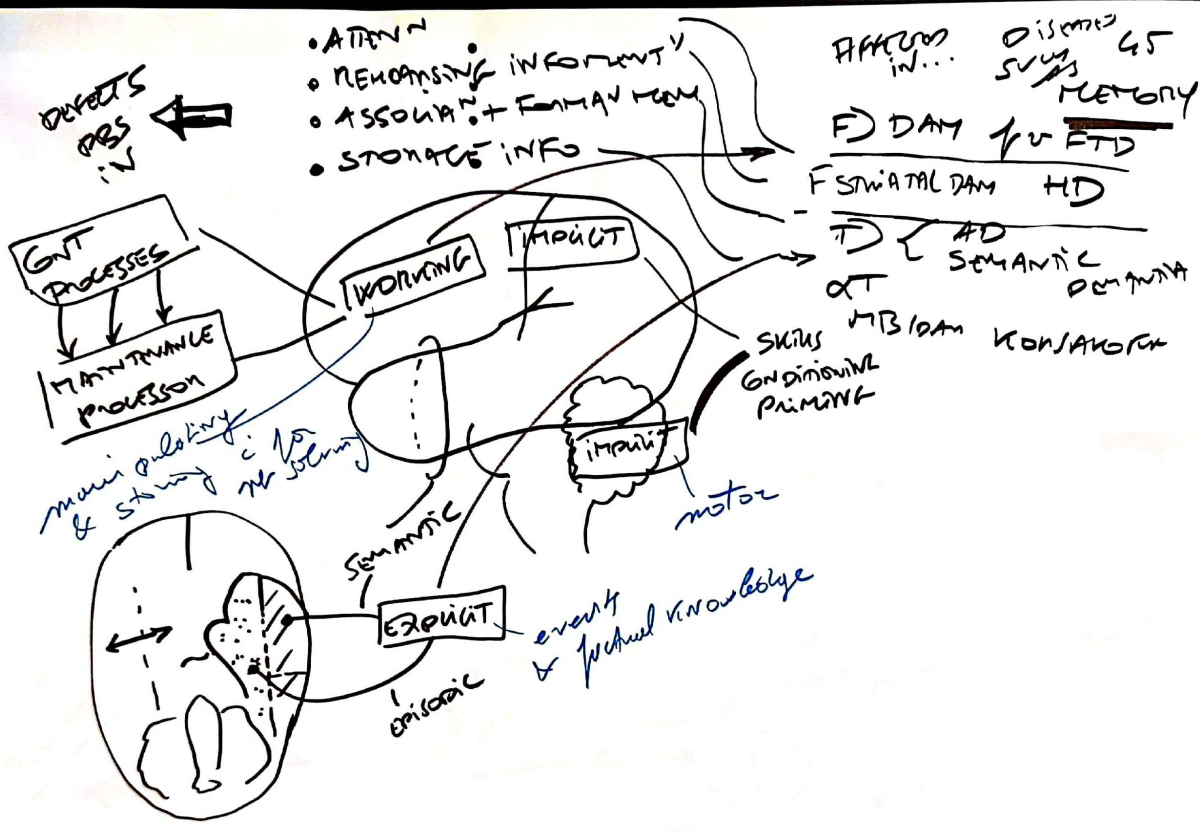 DEFECTS
PBS
IN
• ATTENN
• REHEARSING INFORMENT"
• ASSOCIAN + FORMAN MEM
• STORAGE INFO
AFFECTED
IN...
DISEASES
SUCH
AS
45
MEMORY
F) DAM
FTD
F STRIATAL DAM HD
T) < AD
SEMANTIC
DEMENTIA
αT
MB/DAM KORSAKOFF
CONT
PROCESSES
MAINTENANCE
PROCESSOR
WORKING
IMPLICIT
SKILLS
CONDITIONING
PRIMING
IMPLICIT
motor
manipulating
& storing i for
pb solving
SEMANTIC
EXPLICIT
events
& factual knowledge
EPISODIC